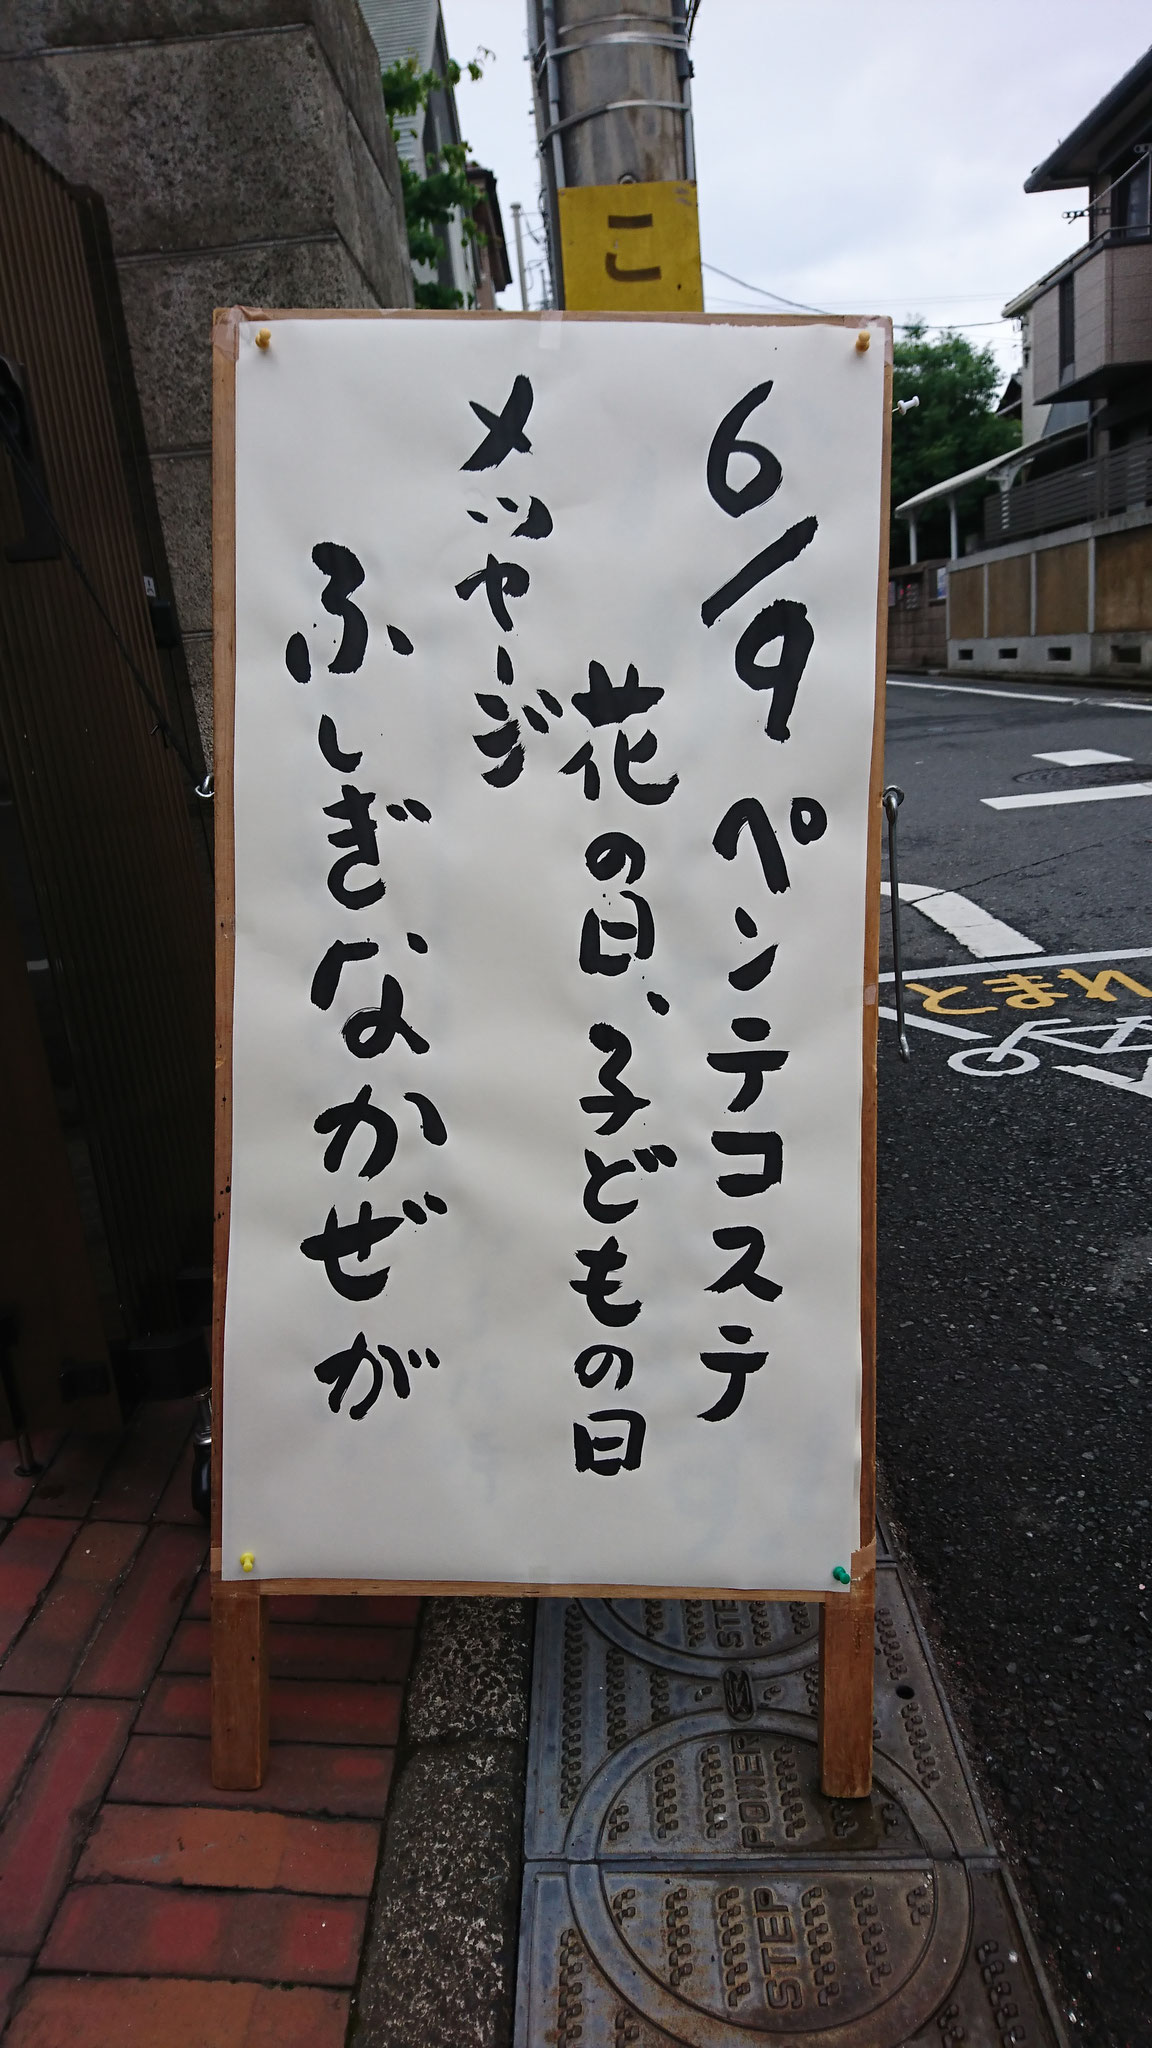 6/9 ペンテコステ
花の日、子どもの日
メッセージ
ふしぎなかぜが
こ
とまれ
STEP
POWER
STEP